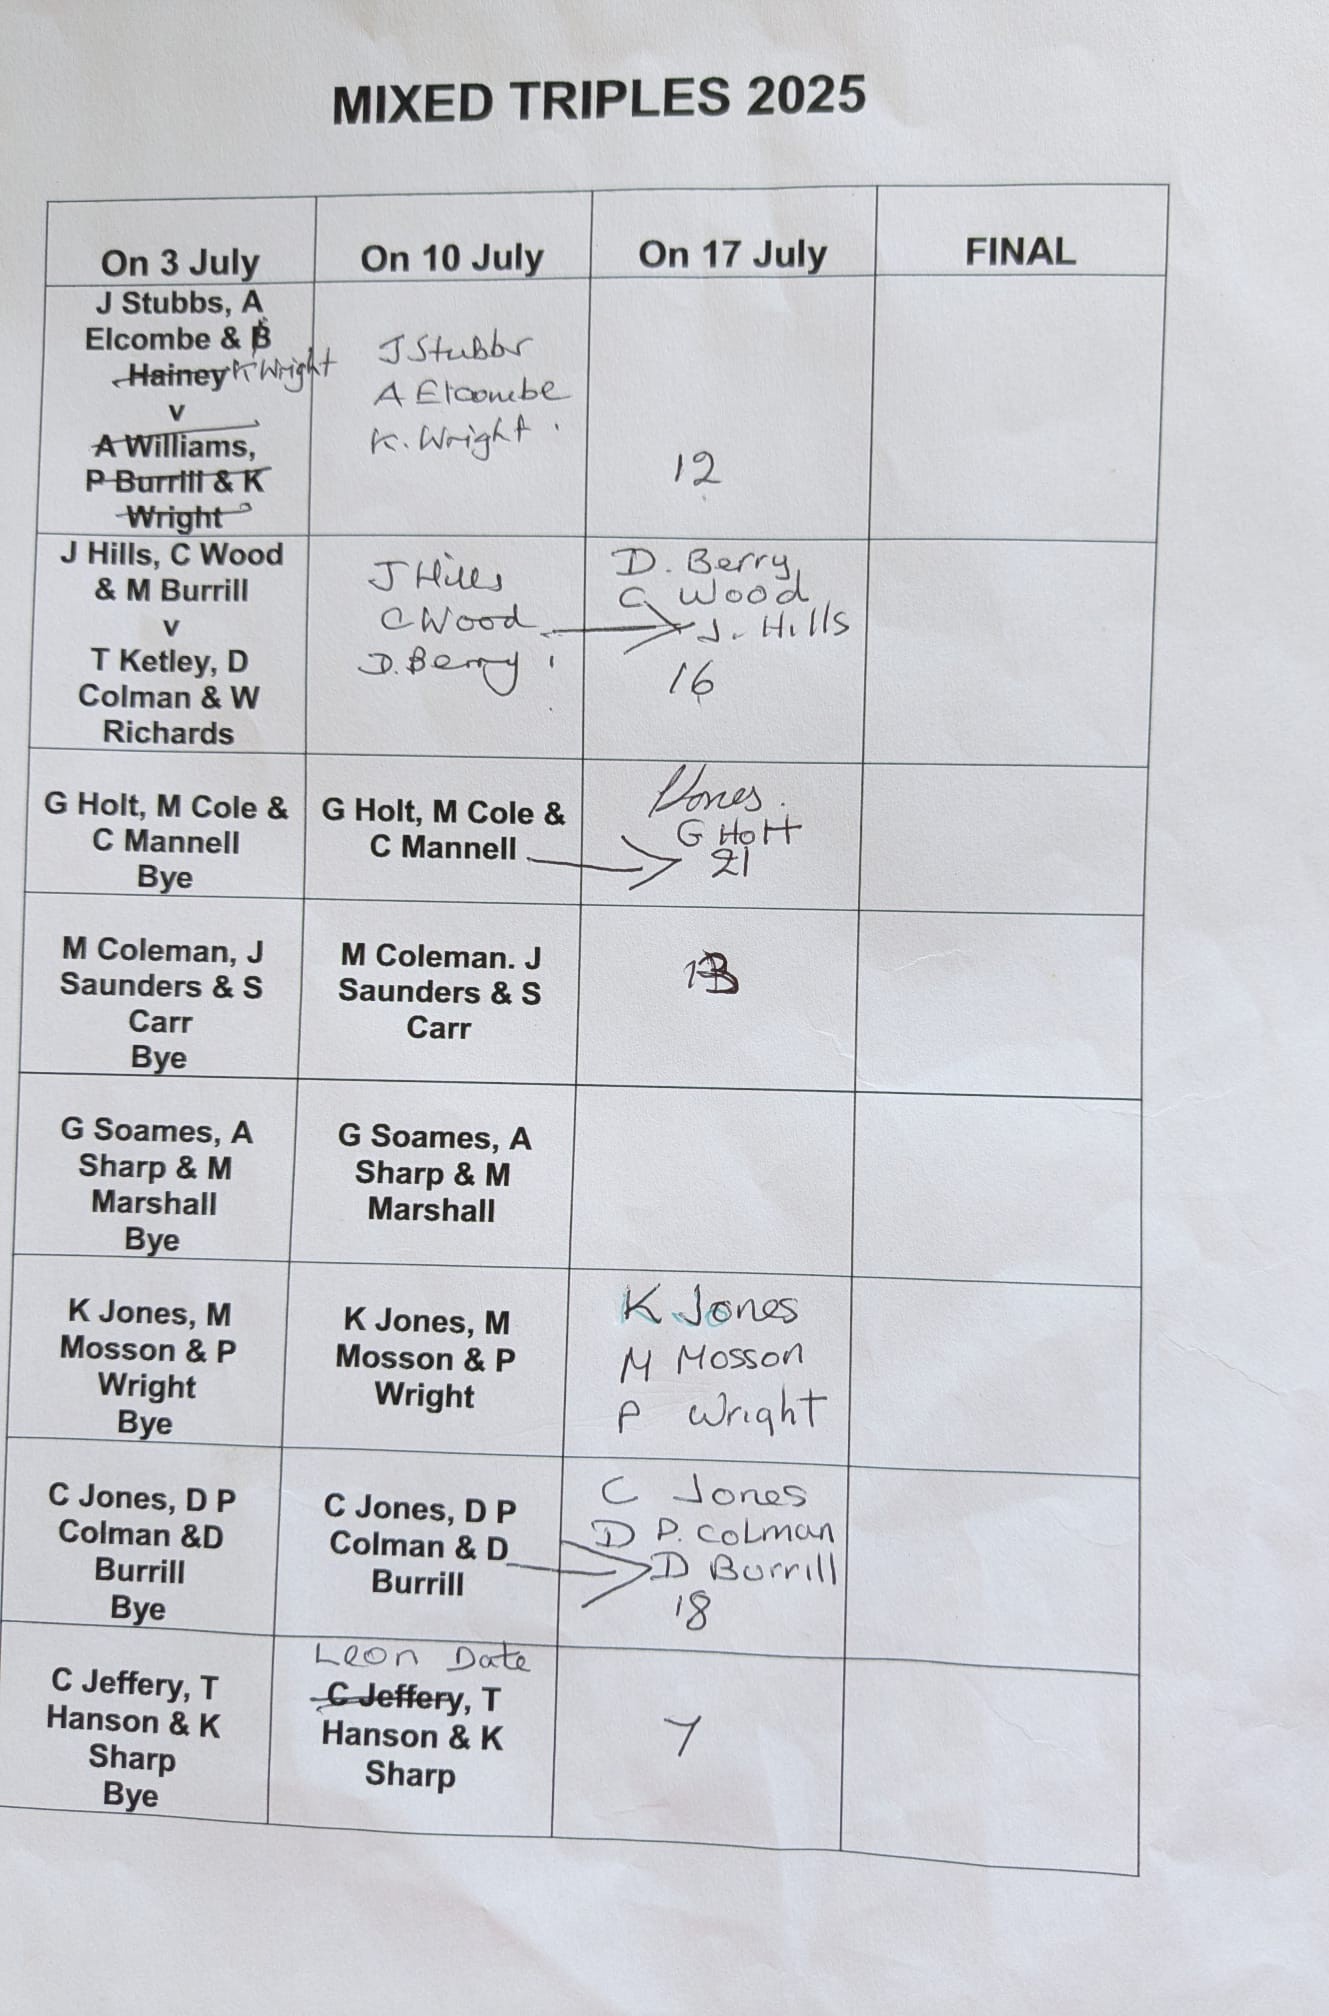 MIXED TRIPLES 2025
On 3 July
On 10 July
On 17 July
FINAL
J Stubbs, A
Elcombe & B
Hainey K Wright
v
A Williams,
P Burrill & K
Wright
J Stubbs
A Elcombe
K. Wright
12
J Hills, C Wood
& M Burrill
v
T Ketley, D
Colman & W
Richards
J Hills
C Wood
D. Berry
D. Berry
C Wood
J. Hills
16
G Holt, M Cole &
C Mannell
Bye
G Holt, M Cole &
C Mannell
G Holt
21
M Coleman, J
Saunders & S
Carr
Bye
M Coleman. J
Saunders & S
Carr
13
G Soames, A
Sharp & M
Marshall
Bye
G Soames, A
Sharp & M
Marshall
K Jones, M
Mosson & P
Wright
Bye
K Jones, M
Mosson & P
Wright
K Jones
M Mosson
P Wright
C Jones, D P
Colman &D
Burrill
Bye
C Jones, D P
Colman & D
Burrill
C Jones
D P. Colman
D Burrill
18
C Jeffery, T
Hanson & K
Sharp
Bye
Leon Date
C Jeffery, T
Hanson & K
Sharp
7